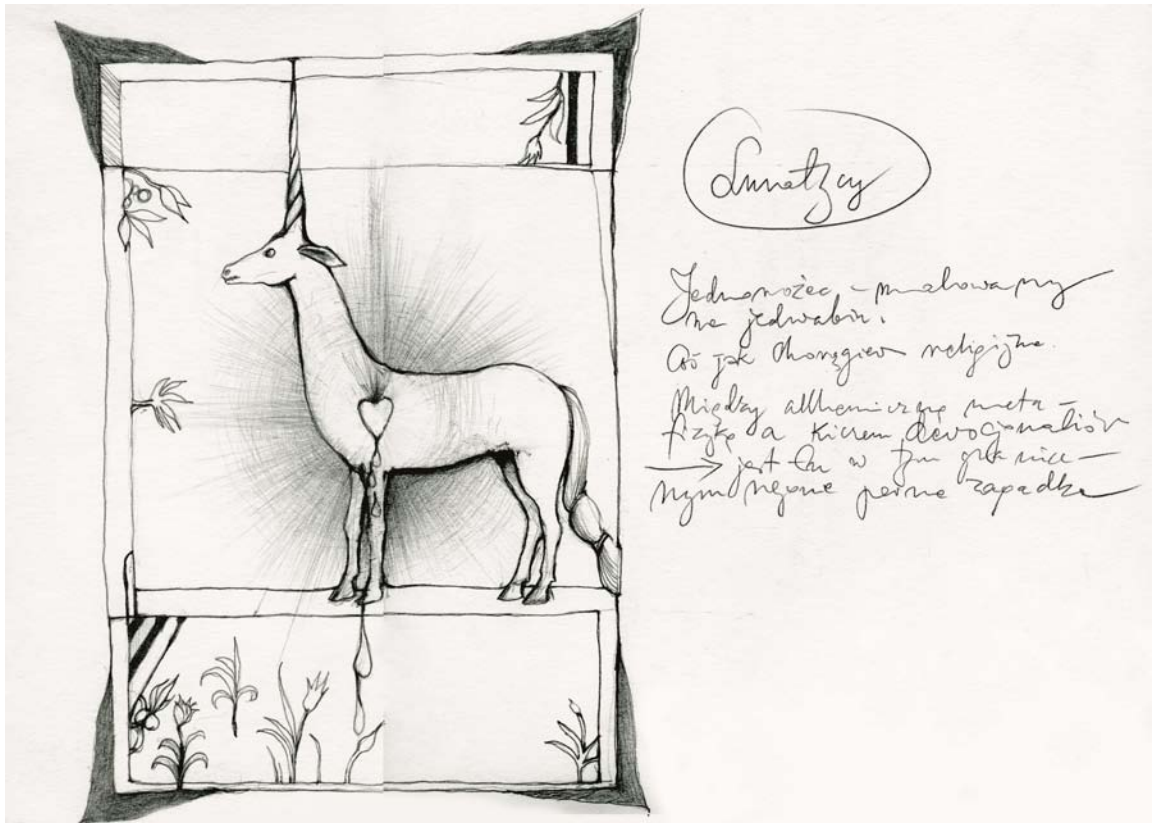 Lunatycy
Jednorożec – malowany
na jedwabiu.
Coś jak chorągiew religijna.
Między alchemiczną meta–
fizyką a kiczem dewocjonaliów
→ jest on w tym
pewną zagadką